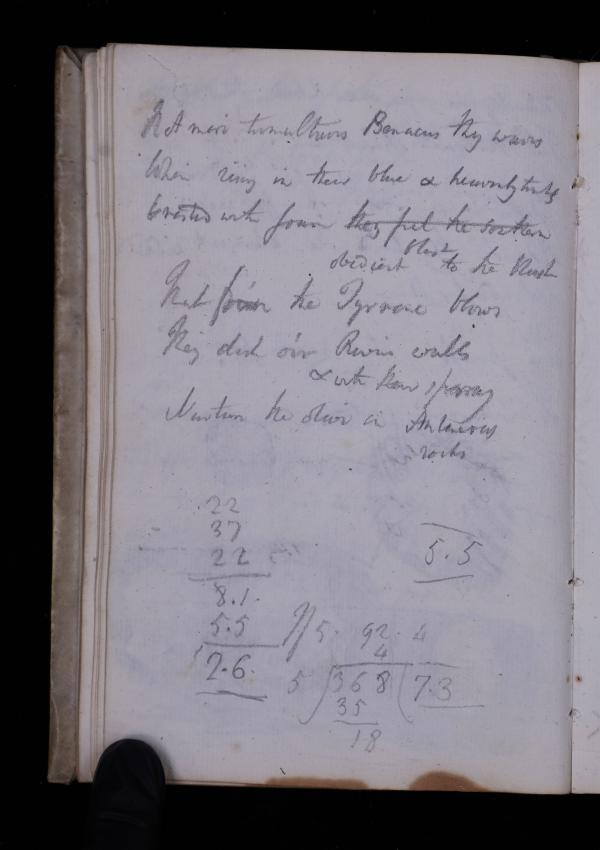 Not more tumultuous Benacus thy waves
When rising in their blue & heavenly tints
Crested with foam they feel the southern
blast
obedient to the blast
That from the Tyrrene blows
They dash o'er Riva's walls
& with their spray
Nurture the olive in
rocks
22
37
22
8.1.
5.5
2.6.
5.5
5. 92. 4
4
5 368 7.3
35
18